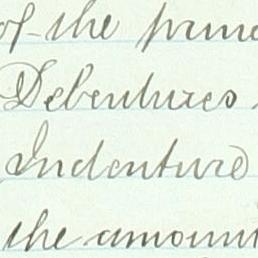 of the prin
Debentures
Indenture
the amoun